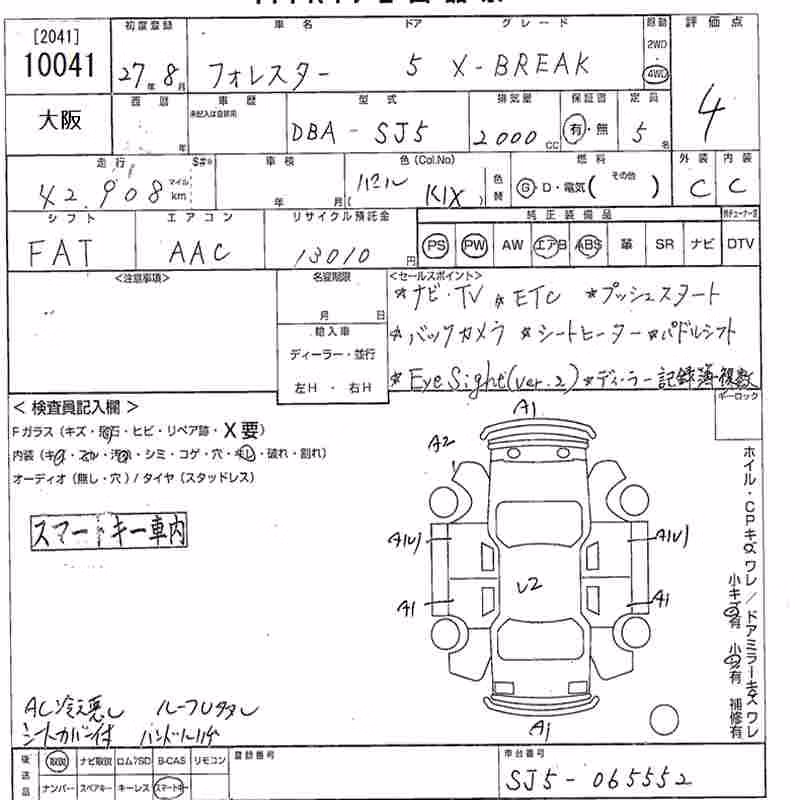 [2041]
10041
初度登録 車名 ドア グレード 駆動 評価点
27年8月 フォレスター 5 X-BREAK 2WD 4WD
大阪
西暦 車歴 型式 排気量 保証書 定員
未記入は自家用
年 DBA-SJ5 2000cc 有・無 5名 4
走行 S#* 車検 色(Col.No) 色替 燃料 外装 内装
42.908 マイル km 年 月 パール ( K1X ) G・D・電気( その他 ) C C
シフト エアコン リサイクル預託金 純正装備品
FAT AAC 13010円 PS PW AW エアB ABS 革 SR ナビ DTV
<注意事項> 名変期限 <セールスポイント>
月 日
*ナビ・TV *ETC *プッシュスタート
輸入車
*バックカメラ *シートヒーター *パドルシフト
ディーラー・並行
左H ・ 右H
*EyeSight(ver.2) *ディーラー記録簿複数
キーロック
< 検査員記入欄 >
Fガラス(キズ・飛石・ヒビ・リペア跡・X要)
内装(キズ・スレ・汚れ・シミ・コゲ・穴・キレ・破れ・割れ)
オーディオ(無し・穴)/タイヤ(スタッドレス)
スマートキー車内
A1
A2
A1(U) A1(U)
U2
A1 A1
A1
ホイル・CPキズワレ/ドアミラーキズワレ
小キズ有 小凹有 補修有
AC冷え悪し
シートカバー付
後送品 取説 ナビ取説 ロム?SD B-CAS リモコン 登録番号 車台番号
ナンバー スペアキー キーレス スマートキー SJ5-065552